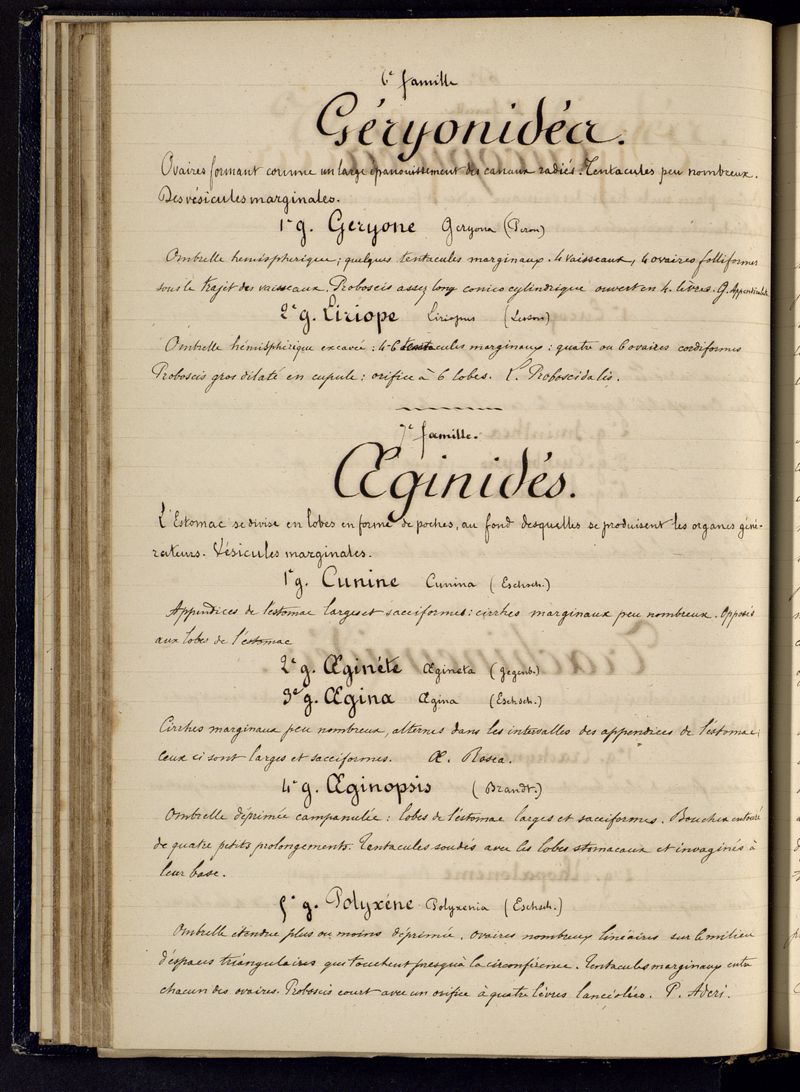 6e famille
Géryonidés.
Ovaires formant comme un large épanouissement des canaux radiés. Tentacules peu nombreux.
Des vésicules marginales.
1r g. Geryone Geryona (Peron)
Ombrelle hemispherique ; quelques tentacules marginaux. 4 vaisseaux, 4 ovaires folliformes
sous le trajet des vaisseaux. Proboscis assez long conico cylindrique ouvert en 4 lèvres. G. Appendiculata
2e g. Liriope Liriopus (Lesson)
Ombrelle hémisphérique excavée : 4-6 tentacules marginaux : quatre ou 6 ovaires cordiformes
Proboscis gros dilaté en cupule : orifice à 6 lobes. L. Proboscidalis.
7e famille.
Œginidés.
L'Estomac se divise en lobes en forme de poches, au fond desquelles se produisent les organes géné-
rateurs. Vésicules marginales.
1r g. Cunine Cunina (Eschsch.)
Appendices de l'estomac larges et sacciformes : cirrhes marginaux peu nombreux. Opposés
aux lobes de l'estomac
2e g. Œginéte Œgineta (Gegenb.)
3e g. Œgina Œgina (Eschsch.)
Cirrhes marginaux peu nombreux, alternes dans les intervalles des appendices de l'estomac,
ceux ci sont larges et sacciformes. Œ. Rosea.
4e g. Œginopsis (Brandt.)
Ombrelle déprimée campanulée : lobes de l'estomac larges et sacciformes. Bouche entouré
de quatre petits prolongements. Tentacules soudés avec les lobes stomacaux et invaginés à
leur base.
5e g. Polyxène Polyxenia (Eschsch.)
Ombrelle étendue plus ou moins déprimée, ovaires nombreux linéaires sur le milieu
d'espaces triangulaires qui touchent presqu'à la circonférence. Tentacules marginaux entre
chacun des ovaires. Proboscis court avec un orifice à quatre lèvres lancéolées. P. Aderi.